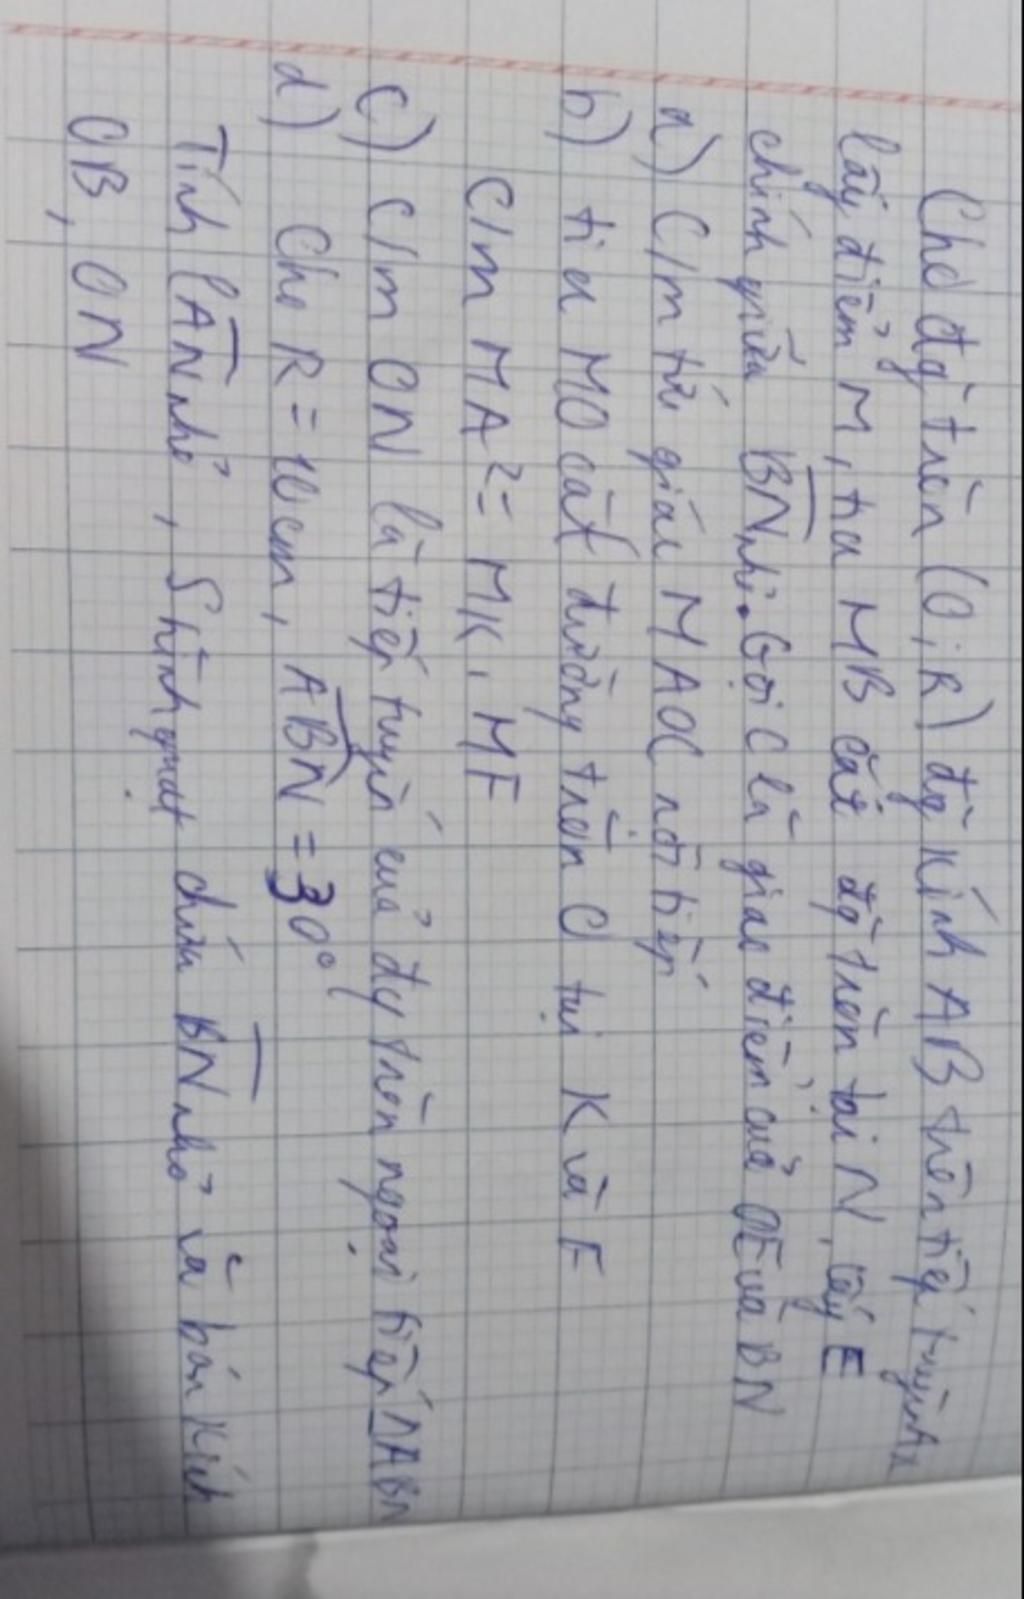 Cho đg tròn (O; R) đg kính AB trên tiếp tuyến Ax
lấy điểm M, tia MB cắt đg tròn tại N, lấy E
chính giữa BN nhỏ. Gọi C là giao điểm của OE và BN
a) C/m tứ giác MAOC nội tiếp
b) tia MO cắt đường tròn O tại K và F
C/m MA² = MK. MF
c) C/m ON là tiếp tuyến của đg tròn ngoại tiếp ΔABM
d) Cho R = 10cm, ABN = 30°
Tính lAN nhỏ, S hình quạt chứa BN nhỏ và bán kính
OB, ON